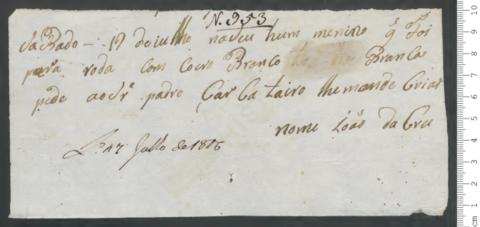 N. 953
saBado - 19 de iulho naseu hum menino q̃ Foi
pera roda com Coero Branco Branca
pede ao sr padre Car Ca tairo lhe mande Criar
nome Ioão da Cru
Lx.a 17 Julho de 1816